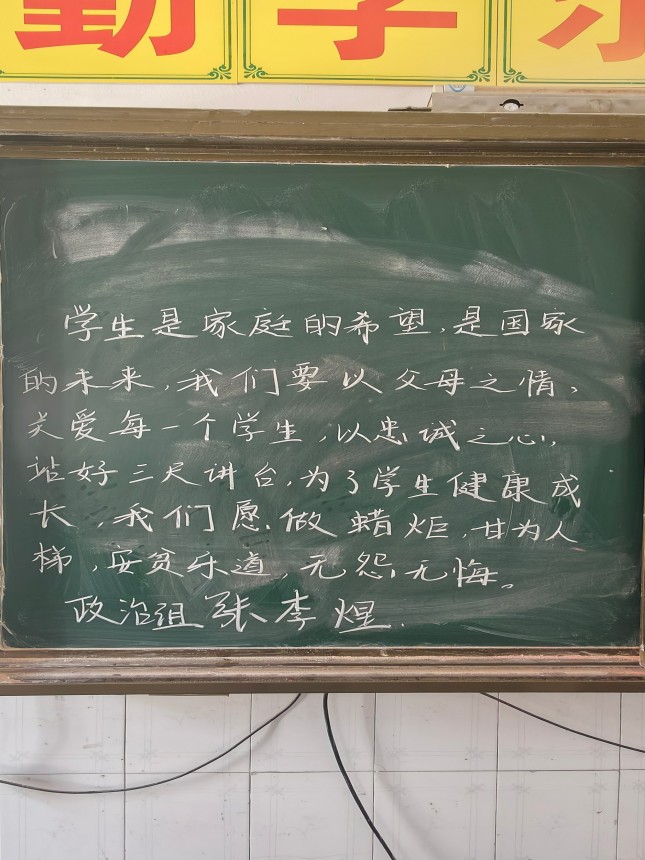 勤学
学生是家庭的希望,是国家
的未来,我们要以父母之情、
关爱每一个学生,以忠诚之心,
站好三尺讲台,为了学生健康成
长,我们愿做蜡炬,甘为人
梯,安贫乐道,无怨无悔。
政治组张李煜.